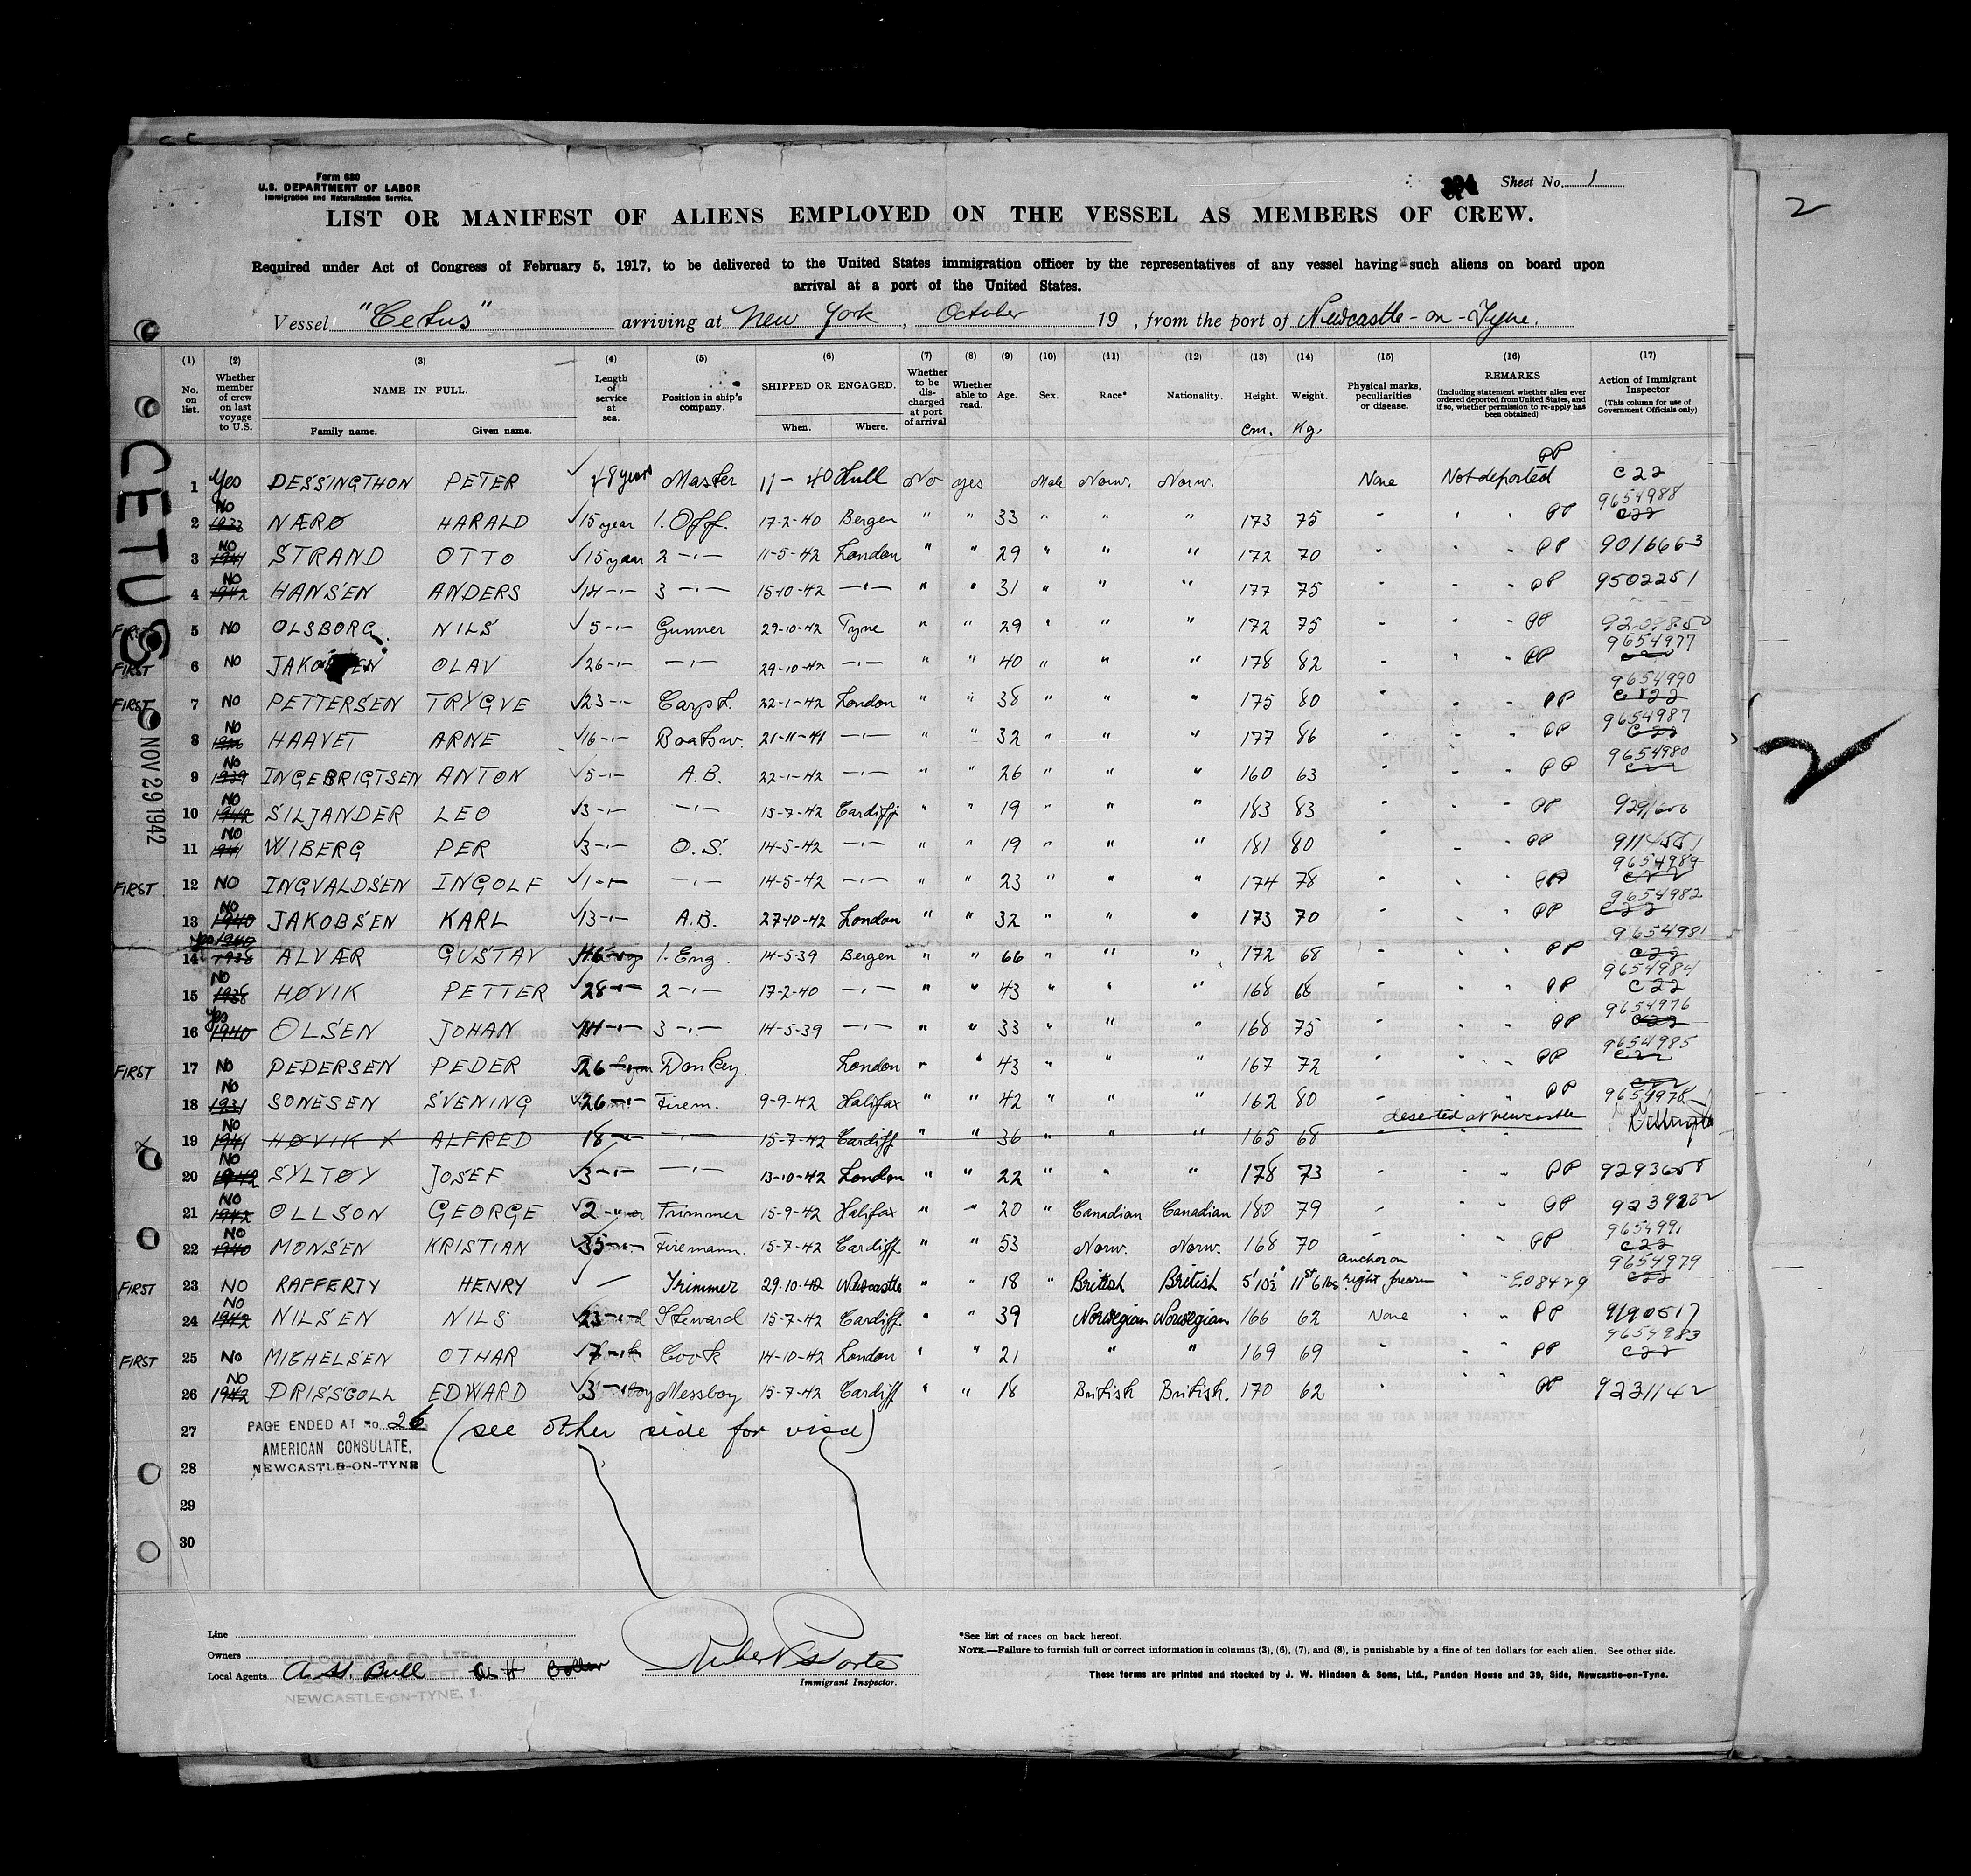 Form 680
U.S. DEPARTMENT OF LABOR
Immigration and Naturalization Service.
Sheet No. 1
2
LIST OR MANIFEST OF ALIENS EMPLOYED ON THE VESSEL AS MEMBERS OF CREW.
Required under Act of Congress of February 5, 1917, to be delivered to the United States immigration officer by the representatives of any vessel having such aliens on board upon
arrival at a port of the United States.
Vessel "Cetus" arriving at New York, October 19 , from the port of Newcastle-on-Tyne.
(1) (2) (3) (4) (5) (6) (7) (8) (9) (10) (11) (12) (13) (14) (15) (16) (17)
No. on list. Whether member of crew on last voyage to U.S. NAME IN FULL. Family name. Given name. Length of service at sea. Position in ship's company. SHIPPED OR ENGAGED. When. Where. Whether to be discharged at port of arrival Whether able to read. Age. Sex. Race* Nationality. Height. Weight. Physical marks, peculiarities or disease. REMARKS (Including statement whether alien ever ordered deported from United States, and if so, whether permission to re-apply has been obtained) Action of Immigrant Inspector (This column for use of Government Officials only)
cm. Kg.
CETUS
NOV 29 1942
1 Yes DESSINGTHON PETER 48 years Master 11-40 Hull No yes Male Norw. Norw. None Not deported PP C22
2 NO 1933 NÆRØ HARALD 15 year 1. Off. 17-2-40 Bergen " " 33 " " " 173 75 - " " PP 9654988 C22
3 NO 1941 STRAND OTTO 15 year 2 -"- 11-5-42 London " " 29 " " " 172 70 - - " PP 9016663
4 NO 1942 HANSEN ANDERS 14 -"- 3 -"- 15-10-42 -"- " " 31 " " " 177 75 - - " PP 9502251
FIRST 5 NO OLSBORG NILS 5 -"- Gunner 29-10-42 Tyne " " 29 " " " 172 75 - - " PP
FIRST 6 NO OLAV 26 -"- -"- 29-10-42 -"- " " 40 " " " 178 82 - " " PP 9654977
FIRST 7 NO PETTERSEN TRYGVE 23 -"- Carpt. 22-1-42 London " " 38 " " " 175 80 - - " PP 9654990 C22
8 NO HAAVET ARNE 16 -"- Boatsw. 21-11-41 -"- " " 32 " " " 177 86 - - " PP 9654987 C22
9 NO 1939 INGEBRIGTSEN ANTON 5 -"- A.B. 22-1-42 -"- " " 26 " " " 160 63 - - " PP 9654980 C22
10 NO 1942 SILJANDER LEO 3 -"- -"- 15-7-42 Cardiff " " 19 " " " 183 83 - - " PP
11 NO 1941 WIBERG PER 3 -"- O.S. 14-5-42 -"- " " 19 " " " 181 80 " - " PP
FIRST 12 NO INGVALDSEN INGOLF 1 -"- -"- 14-5-42 -"- " " 23 " " " 174 78 - " " PP C22
13 NO 1940 JAKOBSEN KARL 13 -"- A.B. 27-10-42 London " " 32 " " " 173 70 - " " PP 9654982 C22
14 Yes 1940 1938 ALVÆR GUSTAV 46 1. Eng. 14-5-39 Bergen " " 66 " " " 172 68 - " " PP 9654981 C22
15 NO 1938 HØVIK PETTER 28 -"- 2 -"- 17-2-40 -"- " " 43 " " " 168 68 - " " PP 9654984 C22
16 Yes 1940 OLSEN JOHAN 14 -"- 3 -"- 14-5-39 -"- " " 33 " " " 168 75 - " " PP 9654976 C22
FIRST 17 NO PEDERSEN PEDER 26 Donkey. London " " 43 " " " 167 72 " " " PP 9654985 C22
18 NO 1931 SONESEN SVENING 26 -"- Firem. 9-9-42 Halifax " " 42 " " " 162 80 " " " PP C22 9654978
deserted at Newcastle
19 NO 1941 HØVIK ALFRED 18 -"- -"- 15-7-42 Cardiff " " 36 " " " 165 68 - " "
20 NO 1942 SYLTØY JOSEF 3 -"- -"- 13-10-42 London " " 22 " " " 178 73 - " " PP
21 NO 1942 OLLSON GEORGE 2 -"- Trimmer 15-9-42 Halifax " " 20 " Canadian Canadian 180 79 - " " PP
22 NO 1940 MONSEN KRISTIAN 35 -"- Firemann. 15-7-42 Cardiff " " 53 Norw. Norw. 168 70 " " " PP 9654991 C22
FIRST 23 NO RAFFERTY HENRY - Trimmer 29.10.42 Newcastle " " 18 " British British 5' 10½" 11st 6 lbs anchor on right forearm " " 9654979 C22
24 NO 1942 NILSEN NILS 23 -"- Steward 15-7-42 Cardiff " " 39 Norwegian Norwegian 166 62 None " " PP 9190517
FIRST 25 NO MICHELSEN OTHAR 7 -"- Cook 14-10-42 London " " 21 " " 169 69 " " " PP 9654983 C22
26 NO 1942 DRISSCOLL EDWARD 3 -"- Messboy 15-7-42 Cardiff " " 18 British British. 170 62 " " " PP 9231142
27 PAGE ENDED AT No. 26 (see other side for visa)
AMERICAN CONSULATE,
28 NEWCASTLE-ON-TYNE
29
30
2
Line
Owners
Local Agents A. H. Bull
NEWCASTLE-ON-TYNE, 1.
Immigrant Inspector.
*See list of races on back hereof.
NOTE.—Failure to furnish full or correct information in columns (3), (6), (7), and (8), is punishable by a fine of ten dollars for each alien. See other side.
These forms are printed and stocked by J. W. Hindson & Sons, Ltd., Pandon House and 39, Side, Newcastle-on-Tyne.